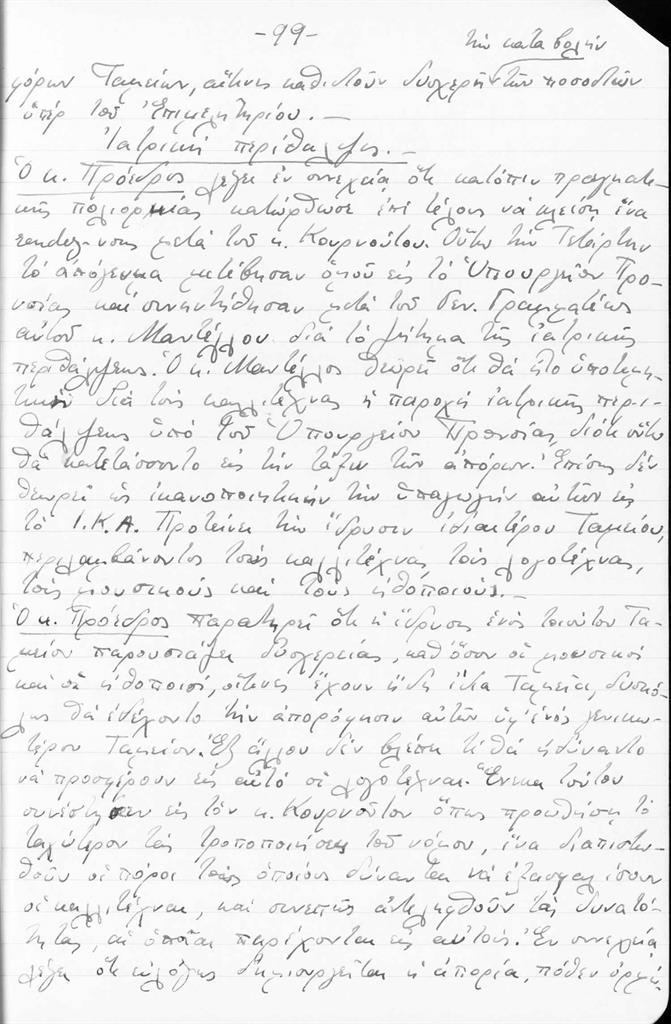 -99-
τὴν καταβολὴν
φόρων Ταμείων, αἵτινες καθιστοῦν δυσχερῆ τῶν ποσοστῶν
ὑπὲρ τοῦ Ἐπιμελητηρίου.-
Ἰατρικὴ περίθαλψις.-
Ὁ κ. Πρόεδρος λέγει ἐν συνεχείᾳ ὅτι κατόπιν πραγματι-
κῆς πολιορκίας κατώρθωσε ἐπὶ τέλους νὰ κλείσῃ ἕνα
rendez-vous μετὰ τοῦ κ. Κουρνούτου. Οὕτω τὴν Τετάρτην
τὸ ἀπόγευμα μετέβησαν ὁμοῦ εἰς τὸ Ὑπουργεῖον Προ-
νοίας καὶ συνηντήθησαν μετὰ τοῦ Γεν. Γραμματέως
αὐτοῦ κ. Μαντέλλου διὰ τὸ ζήτημα τῆς ἰατρικῆς
περιθάλψεως. Ὁ κ. Μαντέλλος θεωρεῖ ὅτι θὰ ἦτο ὑποτιμη-
τικὴ διὰ τοὺς καλλιτέχνας ἡ παροχὴ ἰατρικῆς περι-
θάλψεως ὑπὸ τοῦ Ὑπουργείου Προνοίας, διότι οὕτω
θὰ κατετάσσοντο εἰς τὴν τάξιν τῶν ἀπόρων. Ἐπίσης δὲν
θεωρεῖ ὡς ἱκανοποιητικὴν τὴν ὑπαγωγὴν αὐτῶν εἰς
τὸ Ι.Κ.Α. Προτείνει τὴν ἵδρυσιν ἰδιαιτέρου Ταμείου,
περιλαμβάνοντος τοὺς καλλιτέχνας, τοὺς λογοτέχνας,
τοὺς μουσικοὺς καὶ τοὺς ἠθοποιούς.-
Ὁ κ. Πρόεδρος παρατηρεῖ ὅτι ἡ ἵδρυσις ἑνὸς τοιούτου Τα-
μείου παρουσιάζει δυσχερείας, καθ' ὅσον οἱ μουσικοὶ
καὶ οἱ ἠθοποιοί, οἵτινες ἔχουν ἤδη ἴδια Ταμεῖα, δυσκό-
λως θὰ ἐδέχοντο τὴν ἀπορρόφησιν αὐτῶν ὑφ' ἑνὸς γενικω-
τέρου Ταμείου. Ἐξ ἄλλου δὲν βλέπει τί θὰ ἠδύναντο
νὰ προσφέρουν εἰς αὐτὸ οἱ λογοτέχναι. Ἕνεκα τούτου
συνέστησεν εἰς τὸν κ. Κουρνοῦτον ὅπως προωθήσῃ τὸ
ταχύτερον τὰς τροποποιήσεις τοῦ νόμου, ἵνα διαπιστω-
θοῦν οἱ πόροι τοὺς ὁποίους δύνανται νὰ ἐξασφαλίσουν
οἱ καλλιτέχναι, καὶ συνεπῶς ἀντιληφθοῦν τὰς δυνατό-
τητας, αἱ ὁποῖαι παρέχονται εἰς αὐτούς. Ἐν συνεχείᾳ
λέγει ὅτι εὐλόγως δημιουργεῖται ἡ ἀπορία, πόθεν ὁρμώ-